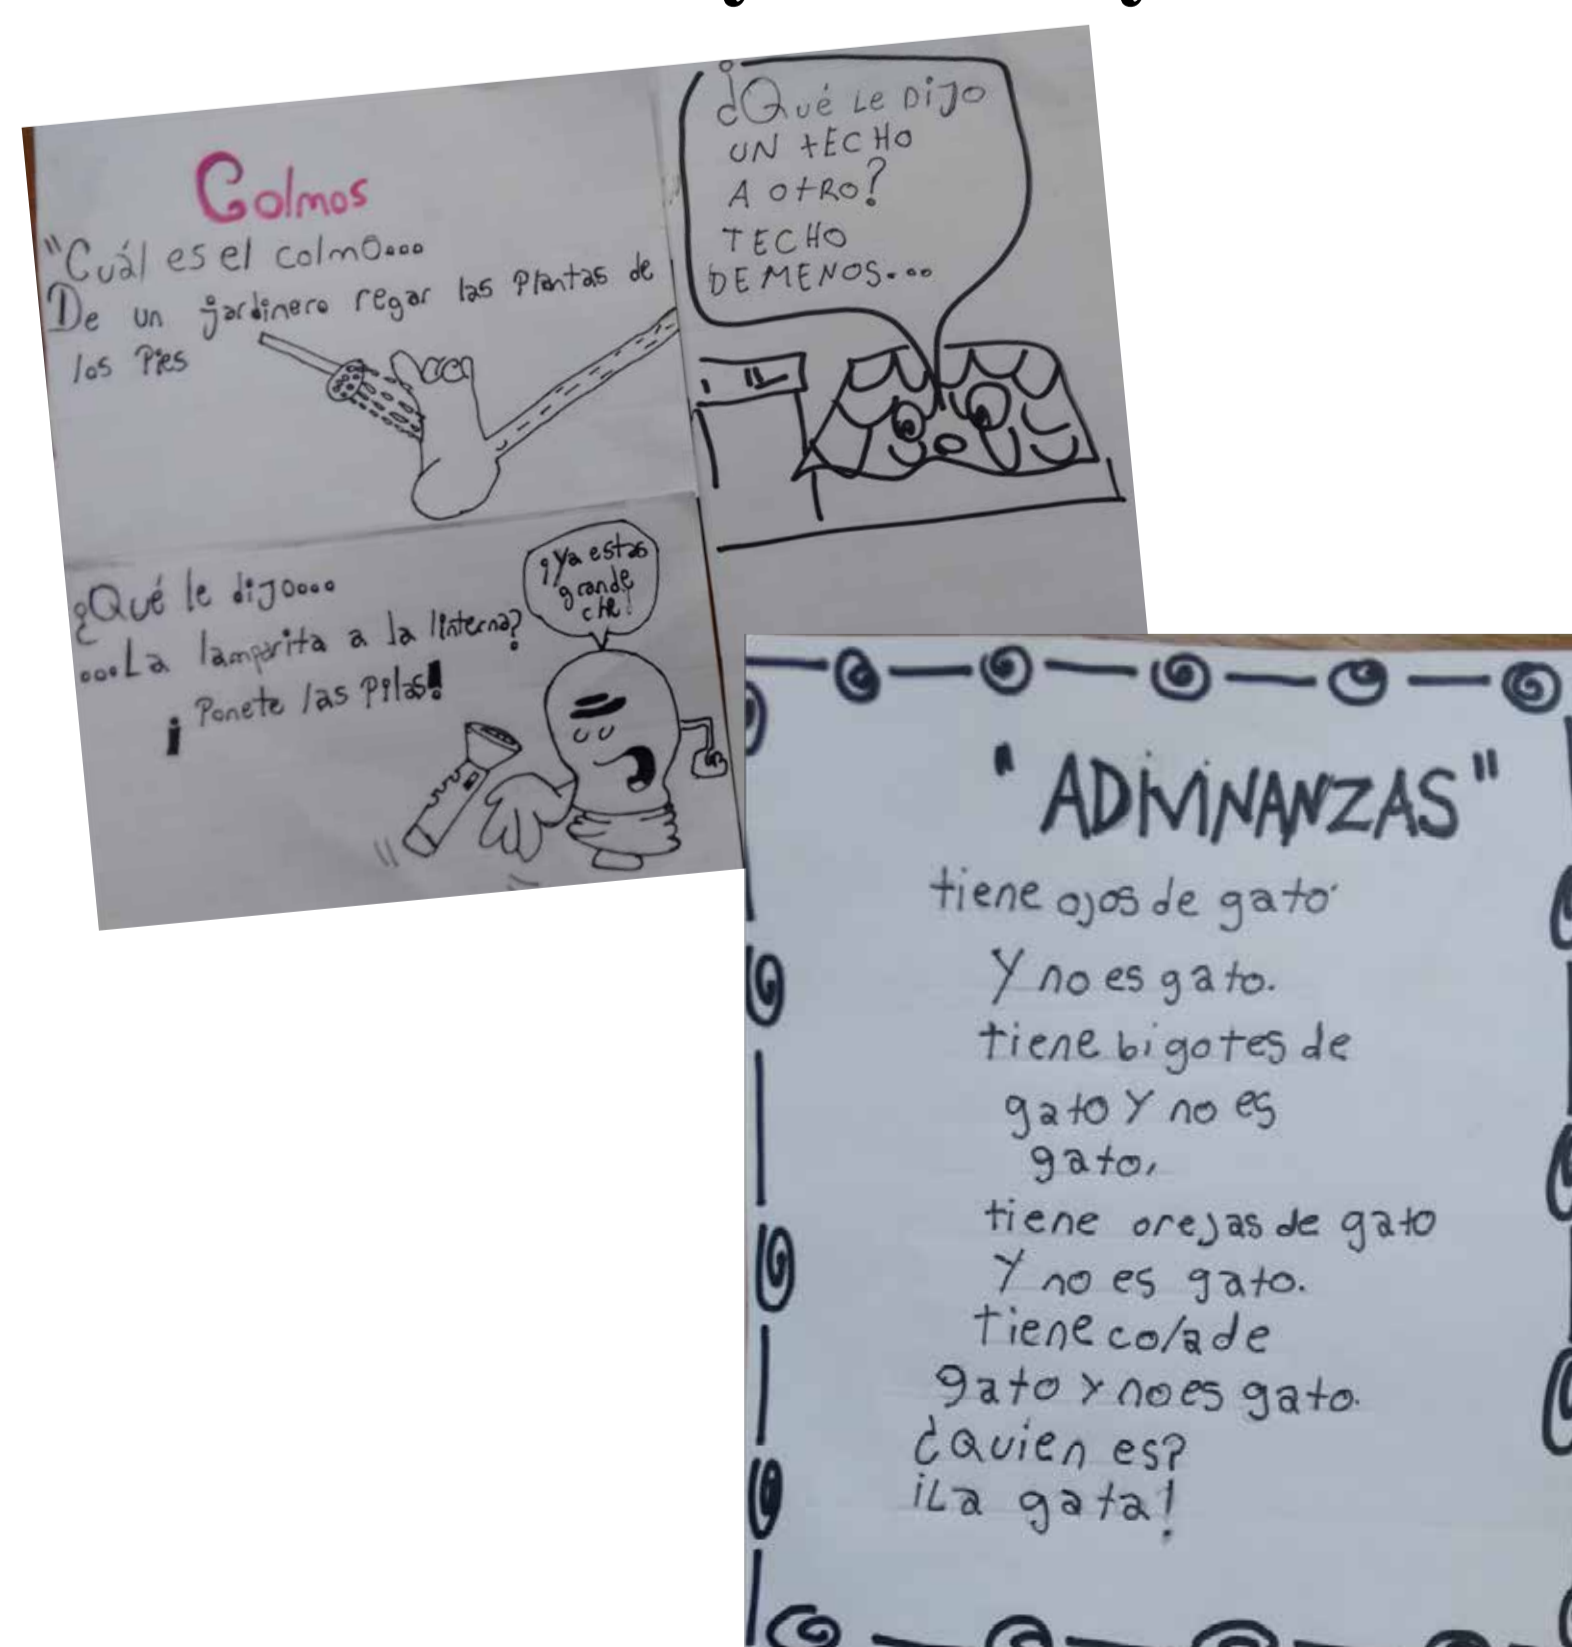 Colmos
"Cuál es el colmo....
De un jardinero regar las Plantas de
los Pies
¿Qué Le DiJo
UN tECHO
A OtRO?
TECHO
DE MENOS....
¿Qué le dijo....
....La lamparita a la linterna?
¡Ponete las Pilas!
¡Ya estas
grande
che!
"ADIVINANZAS"
tiene ojos de gato
Y no es gato.
tiene bigotes de
gato Y no es
gato,
tiene orejas de gato
Y no es gato.
tiene cola de
gato y no es gato.
¿Quien es?
¡La gata!